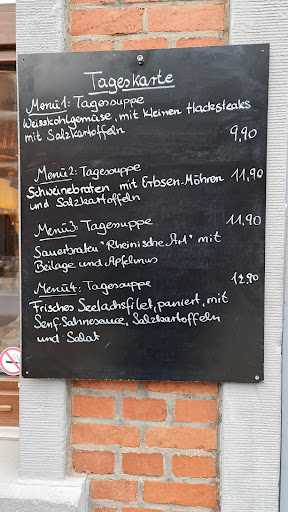 Tageskarte
Menü 1: Tagessuppe
Weisskohlgemüse, mit kleinen Hacksteaks
mit Salzkartoffeln 9,90
Menü 2: Tagessuppe 11,90
Schweinebraten mit Erbsen-Möhren
und Salzkartoffeln
Menü 3: Tagessuppe 11,90
Sauerbraten "Rheinische Art" mit
Beilage und Apfelmus
Menü 4: Tagessuppe 12,90
Frisches Seelachsfilet, paniert, mit
Senf-Sahnesauce, Salzkartoffeln
und Salat